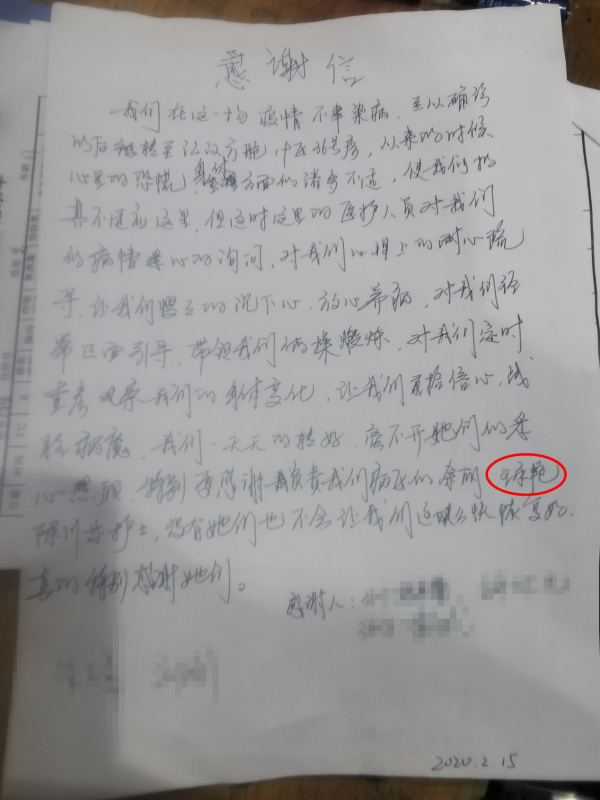 感谢信
我们在这一场疫情不幸染病,至从确诊
以后被转至江汉方舱,中区36号房,从来的时候
心里的恐慌,身体方面的诸多不适,使我们
不适应这里,但这时这里的医护人员对我们
的病情 心的询问,对我们心理上的耐心疏
导,让我们 的沉下心,放心养病,对我们
引导,带领我们 操锻炼,对我们定时
查房观察我们的身体变化,让我们重拾信心,战
胜病魔,我们一天天的转好,离不开她们的悉
心照顾,特别要感谢 负责我们病区的
护士,没有她们也不会让我们这么快恢复好.
真的特别感谢她们。
感谢人:
2020.2.15